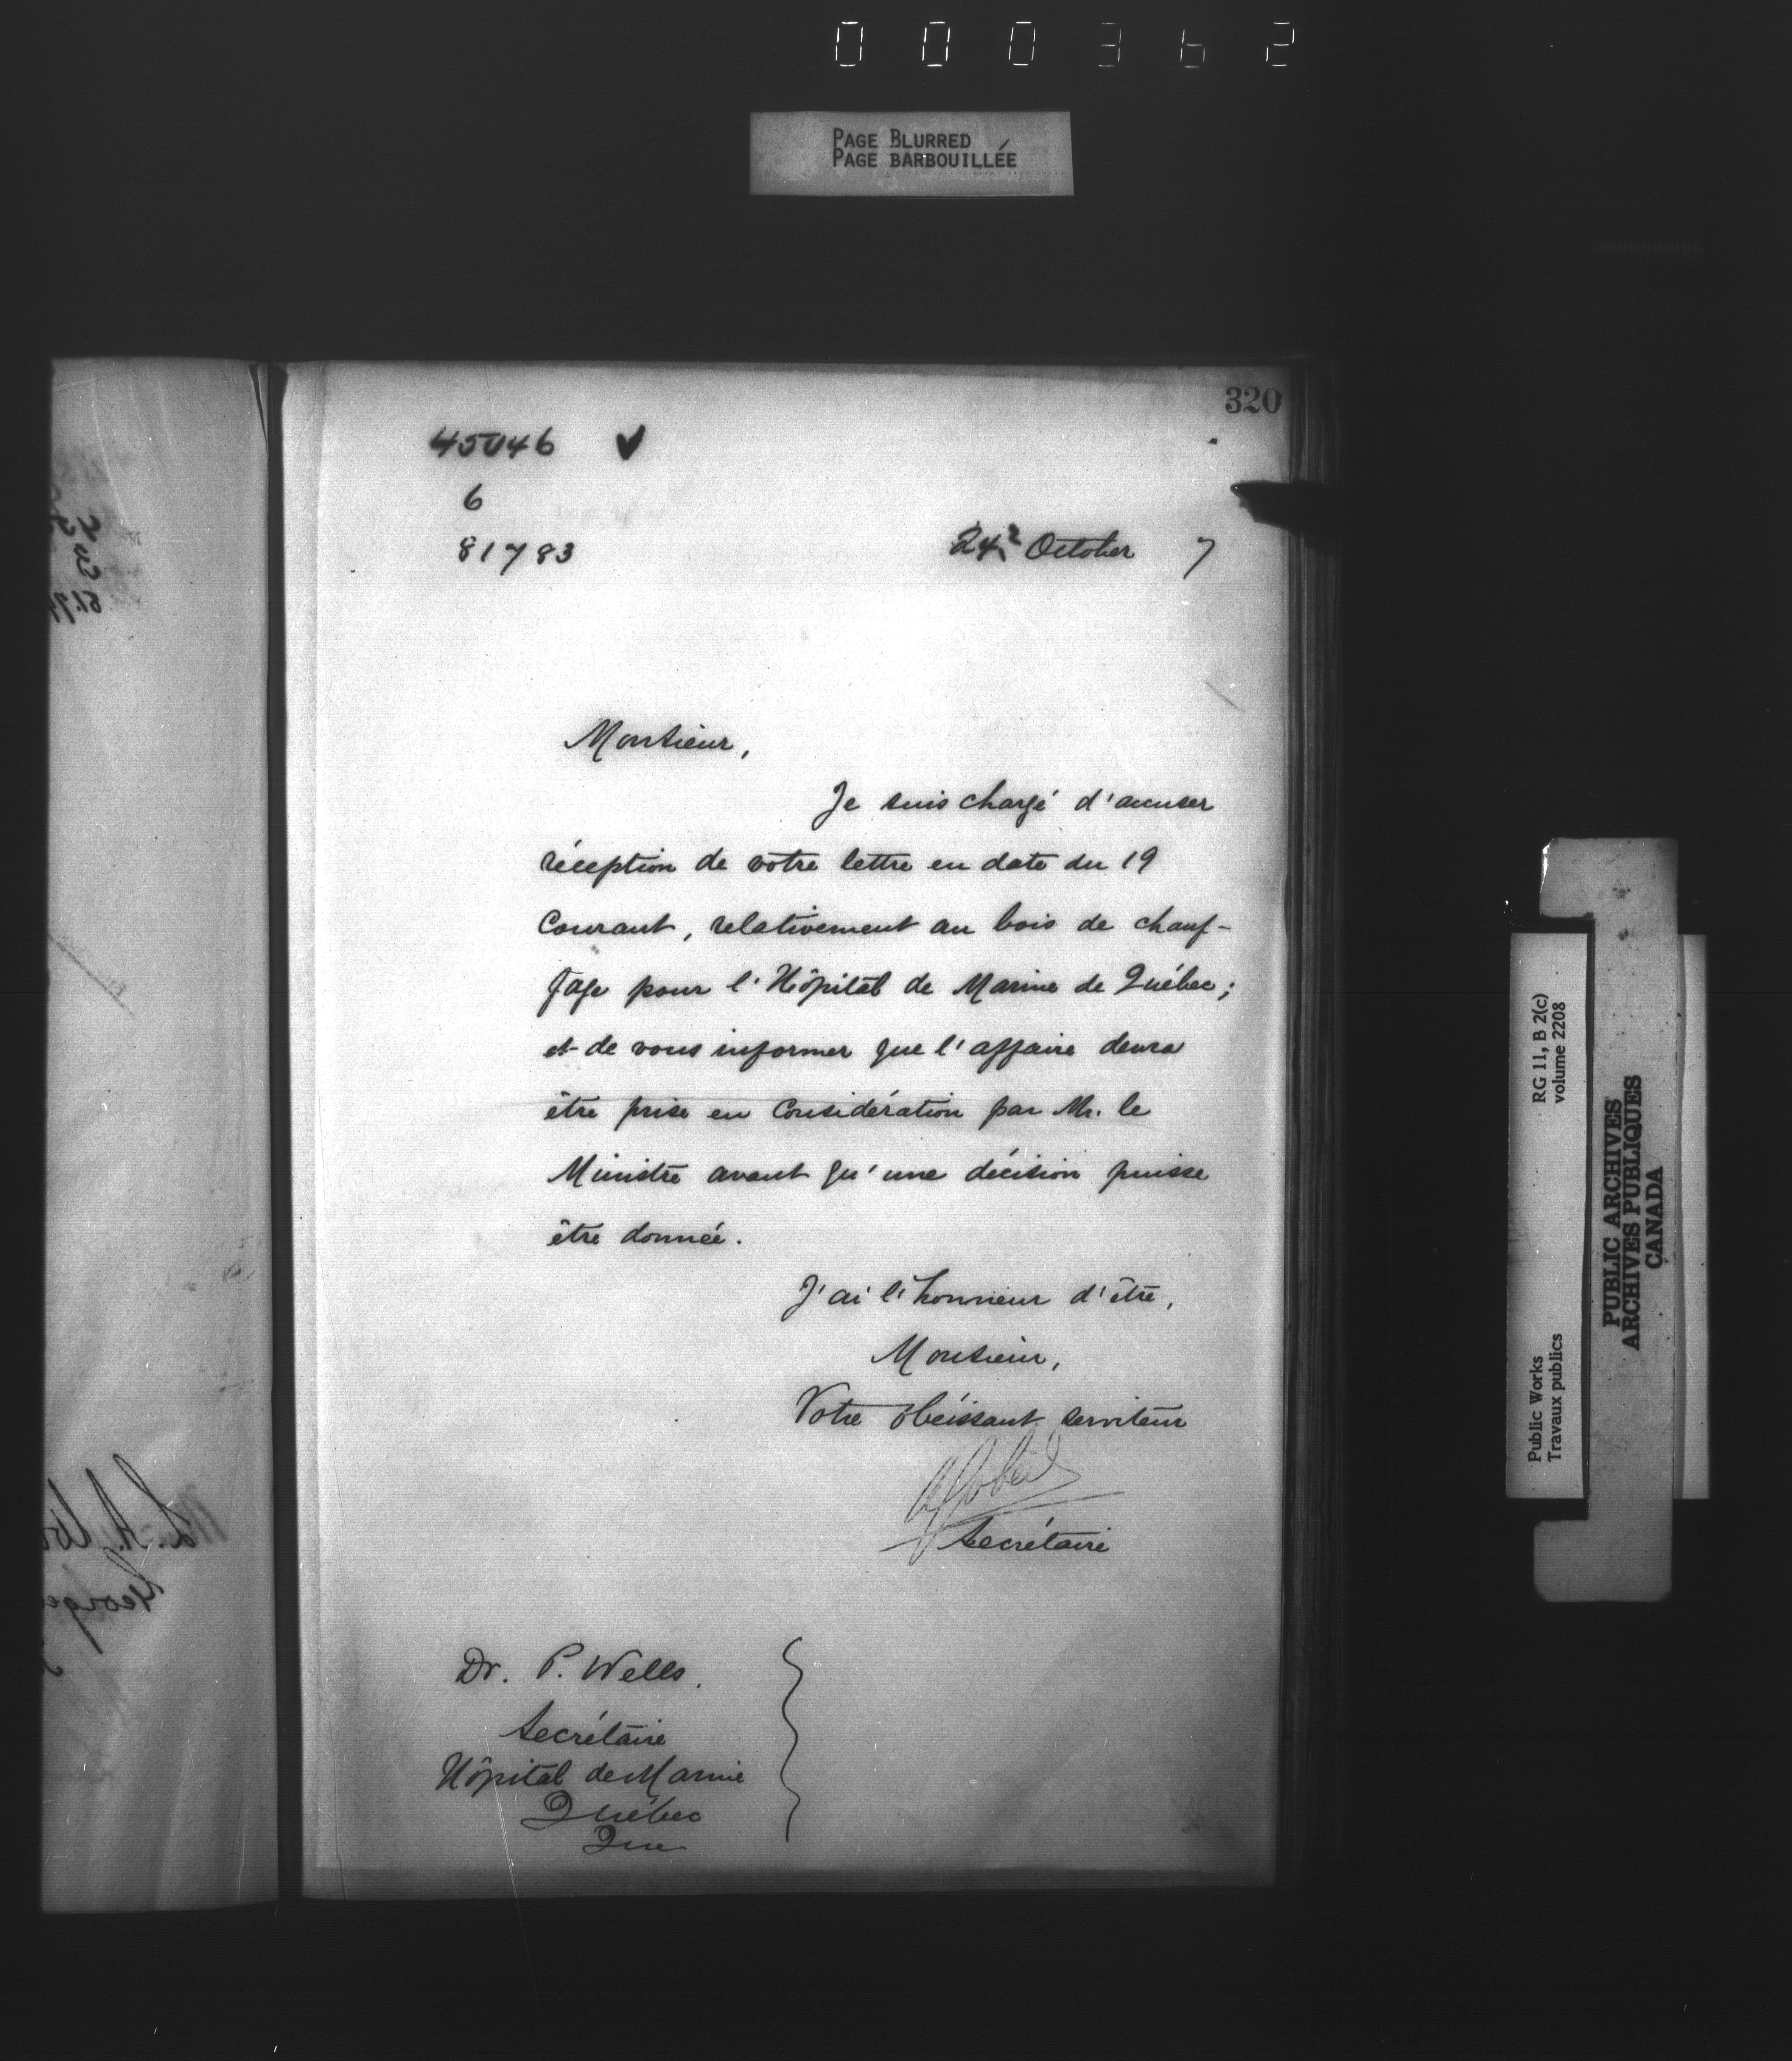 000362
PAGE BLURRED
PAGE BARBOUILLÉE
320
45046
6
81783
24 October 7
Monsieur,
Je suis chargé d'accuser
réception de votre lettre en date du 19
Courant, relativement au bois de chauf-
fage pour l'Hôpital de Marine de Québec;
et de vous informer que l'affaire devra
être prise en Considération par Mr. le
Ministre avant qu'une décision puisse
être donnée.
J'ai l'honneur d'être,
Monsieur,
Votre obéissant serviteur
A Gobeil
Secrétaire
Dr. P. Wells.
Secrétaire
Hôpital de Marine
Québec
Que
RG 11, B 2(c)
volume 2208
Public Works
Travaux publics
PUBLIC ARCHIVES
ARCHIVES PUBLIQUES
CANADA